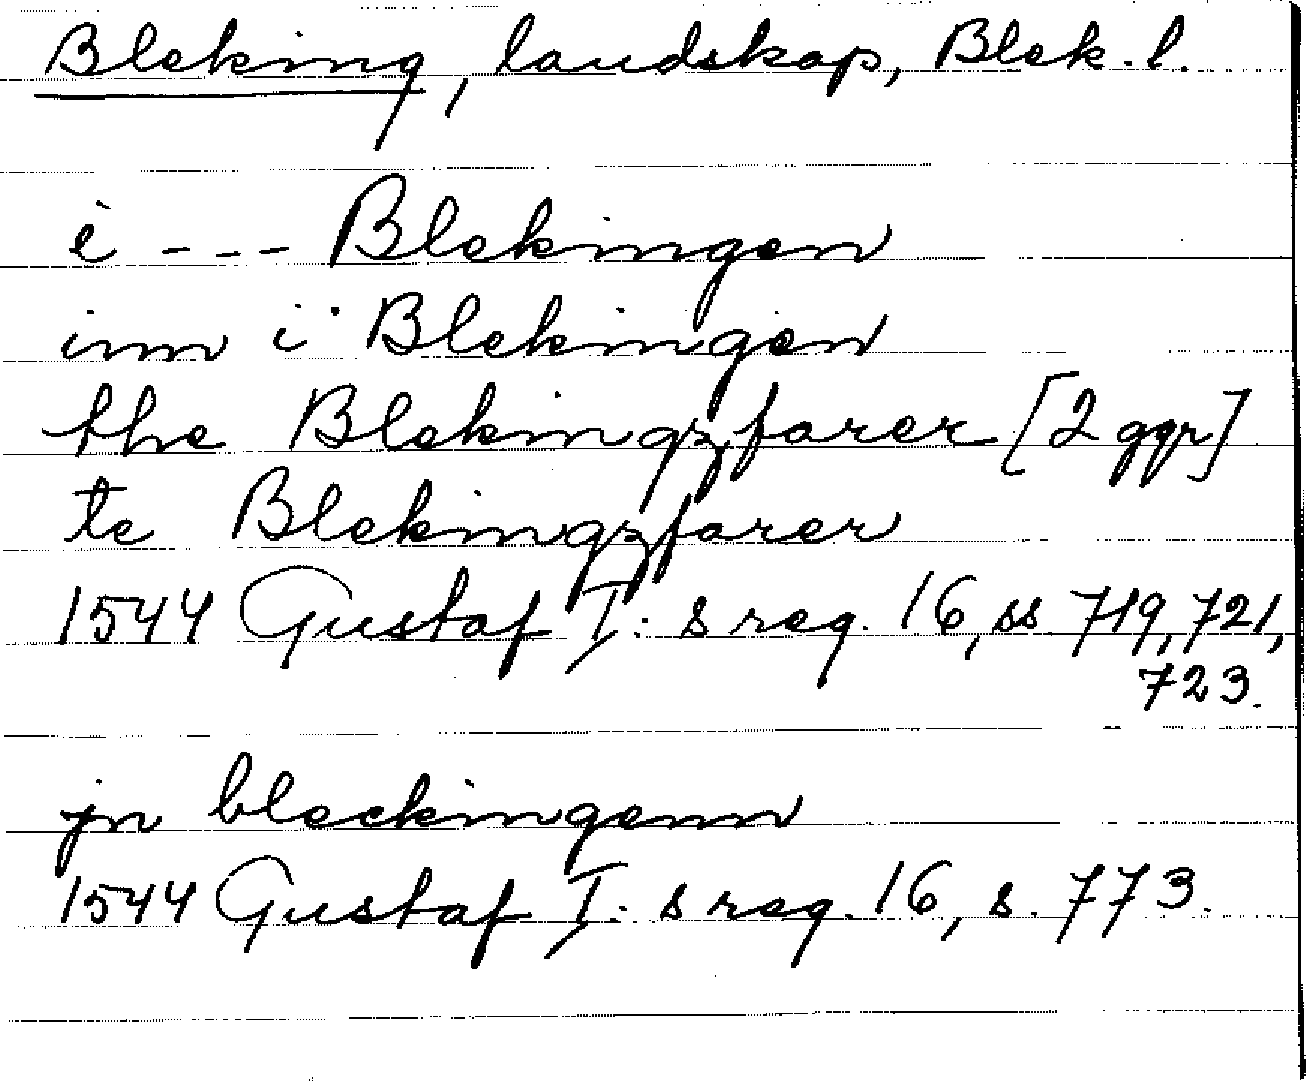 Bleking, landskap, Blek. l.
i - - - Blekingen
inn i Blekingen
the Blekingzfarer [2 ggr]
te Blekingzfarer
1544 Gustaf I: s reg. 16, ss 719, 721,
723.
jn bleckingenn
1544 Gustaf I: s reg. 16, s. 773.